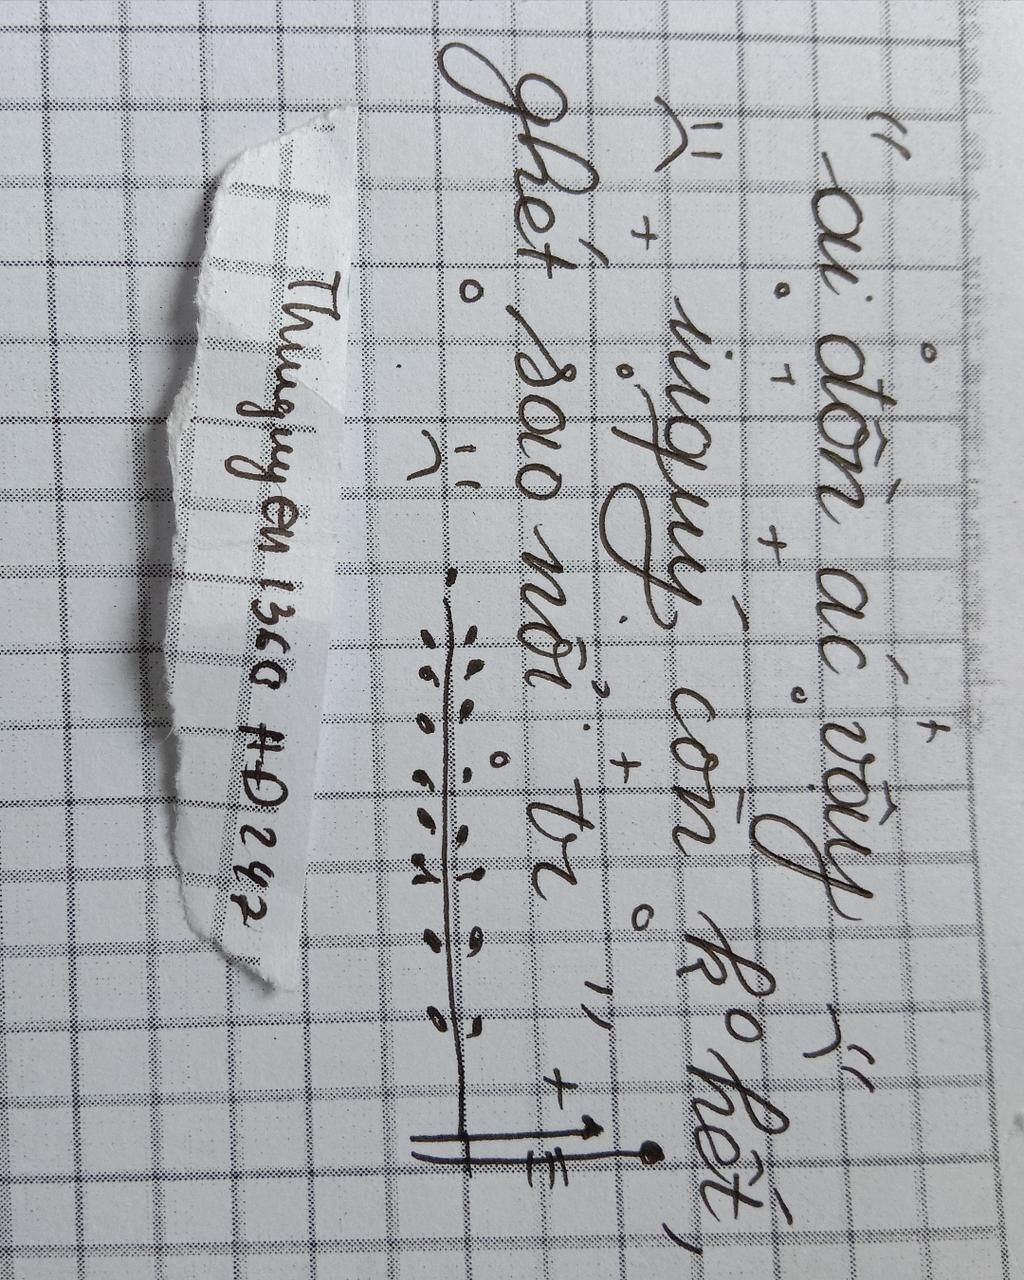 “ai đồn ác vậy
nguý còn ko hết,
ghét sao nỗi tr”
Thunguyen1360 HĐ247